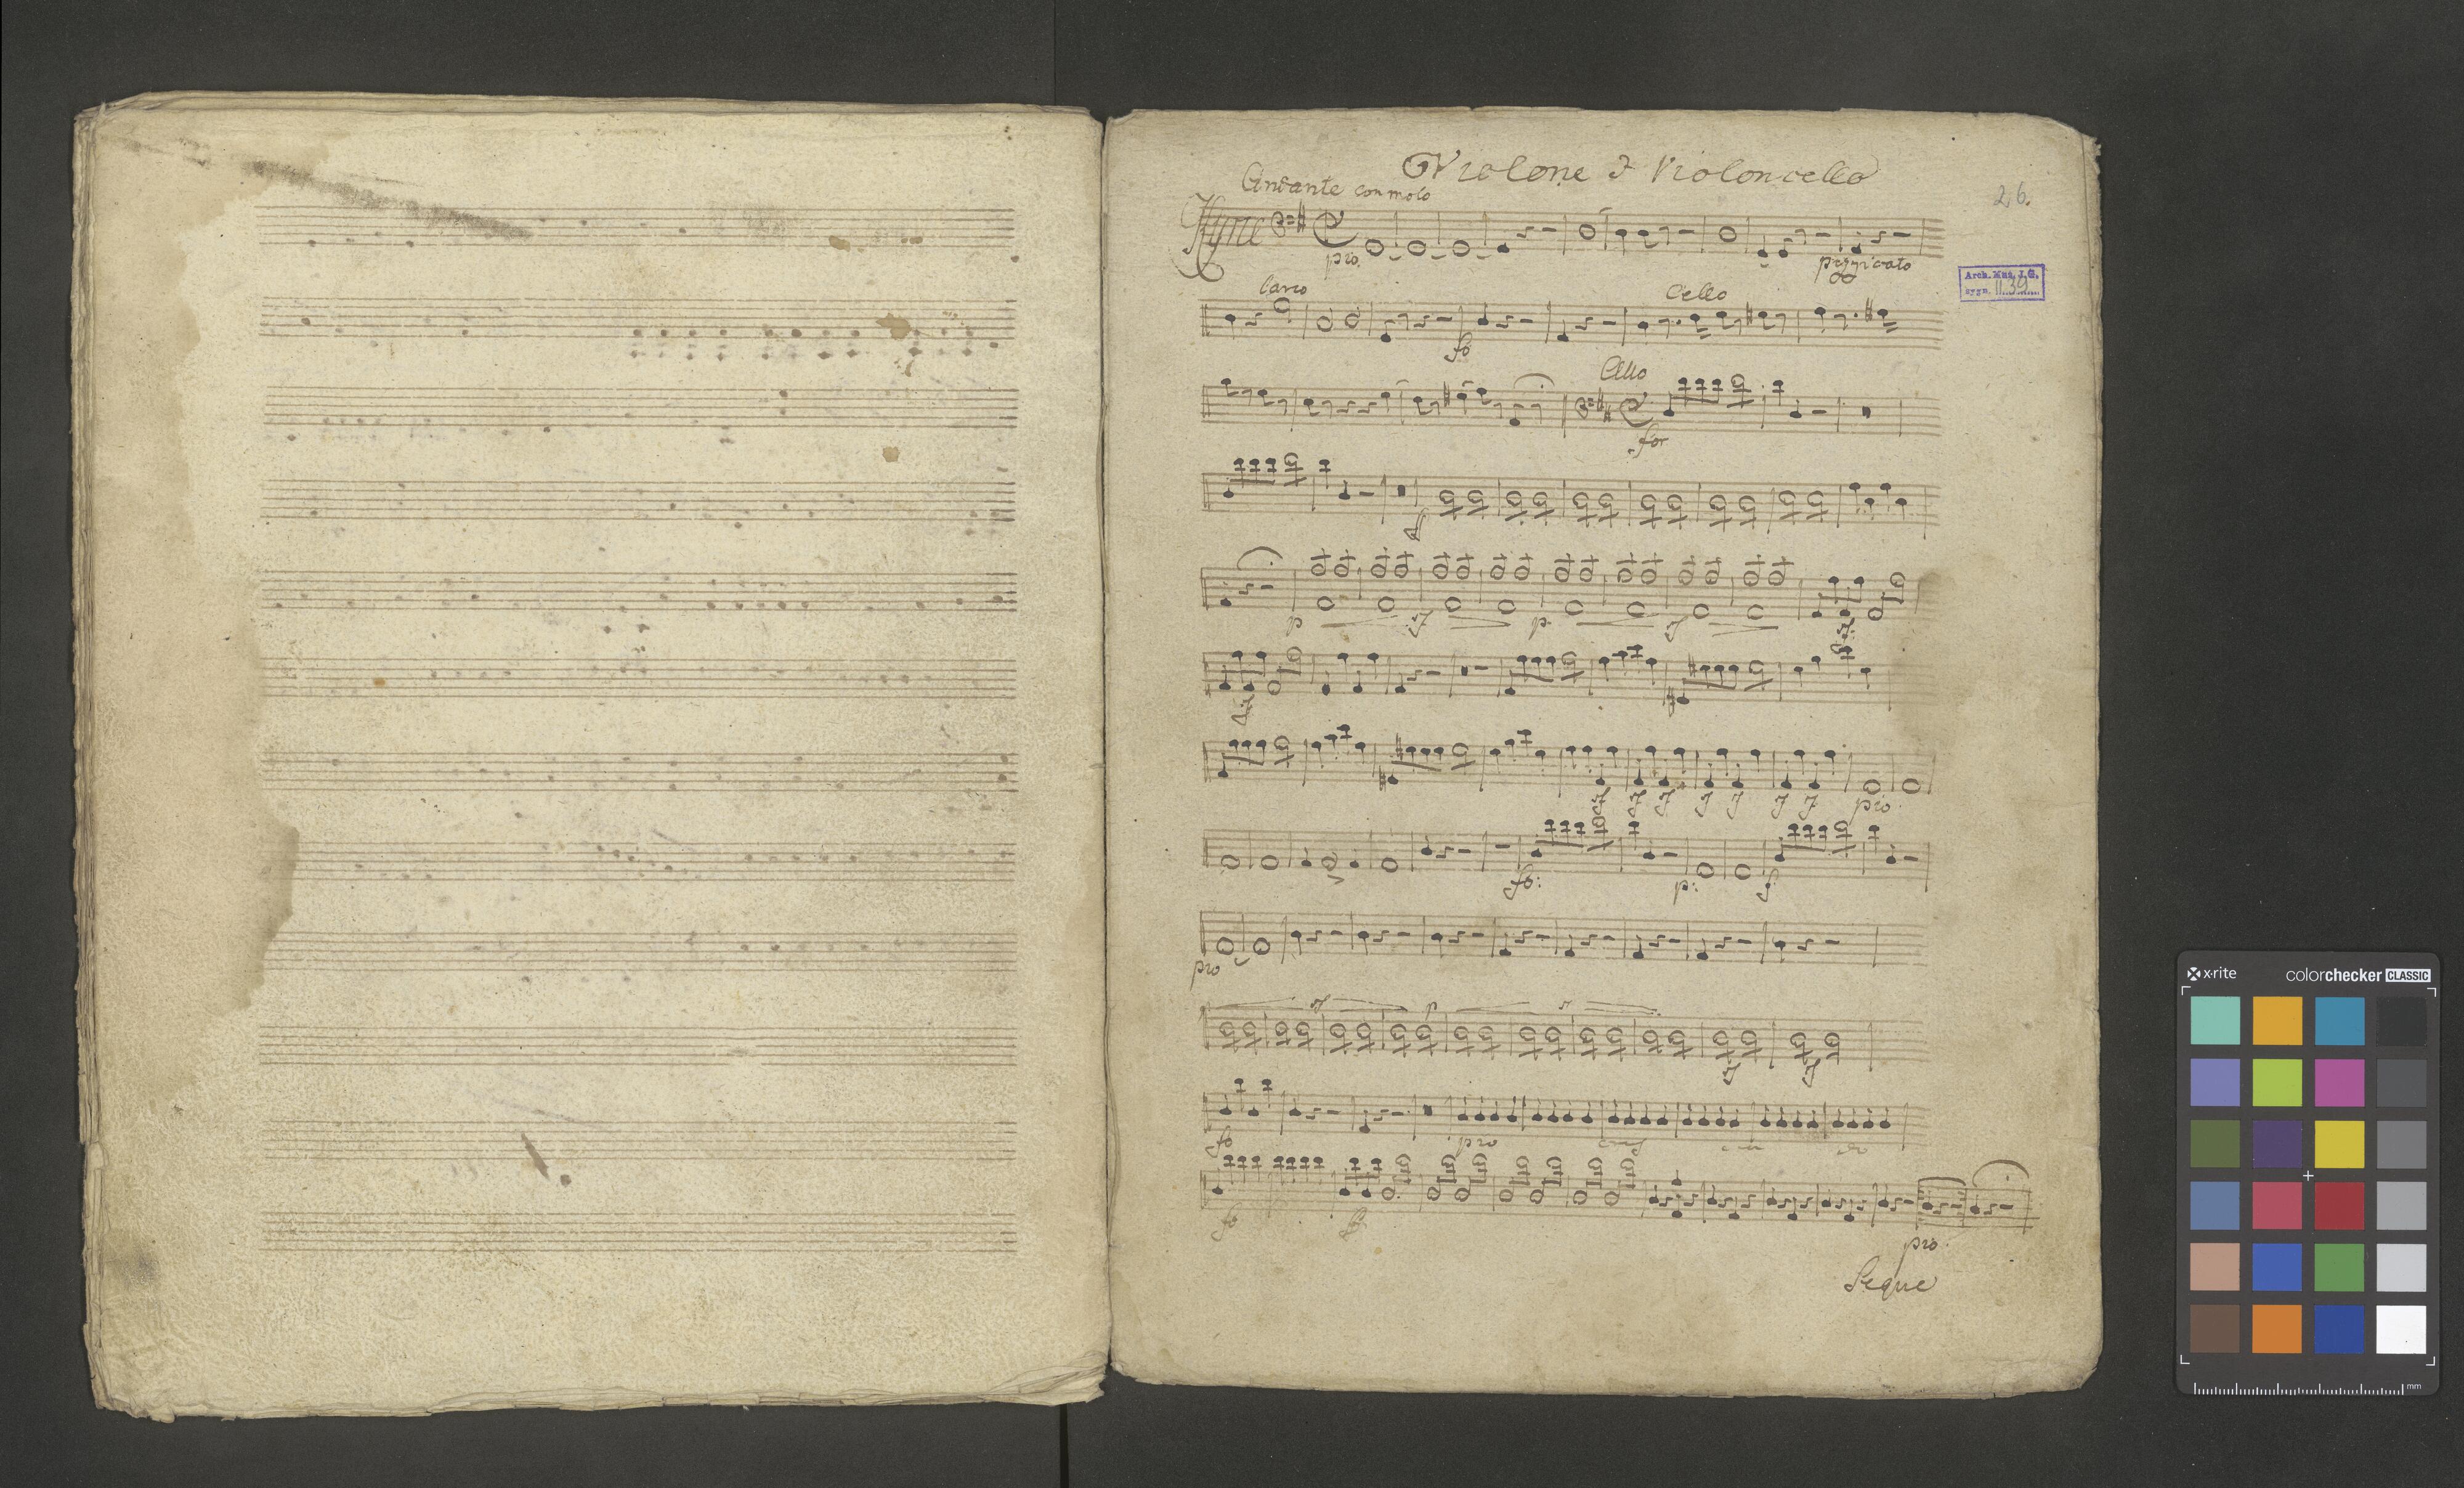 Violone & Violoncello
Andante con moto
26.
pio
pizzicato
Arch. Muz. J.G.
sygn. II.39
l'arco
Cello
fo
Cello
for
f
p
p.
pio
fo:
p:
f
pio
p
fo
pio
cres
cen
do
fo
pio
Seque
x-rite
colorchecker CLASSIC
mm